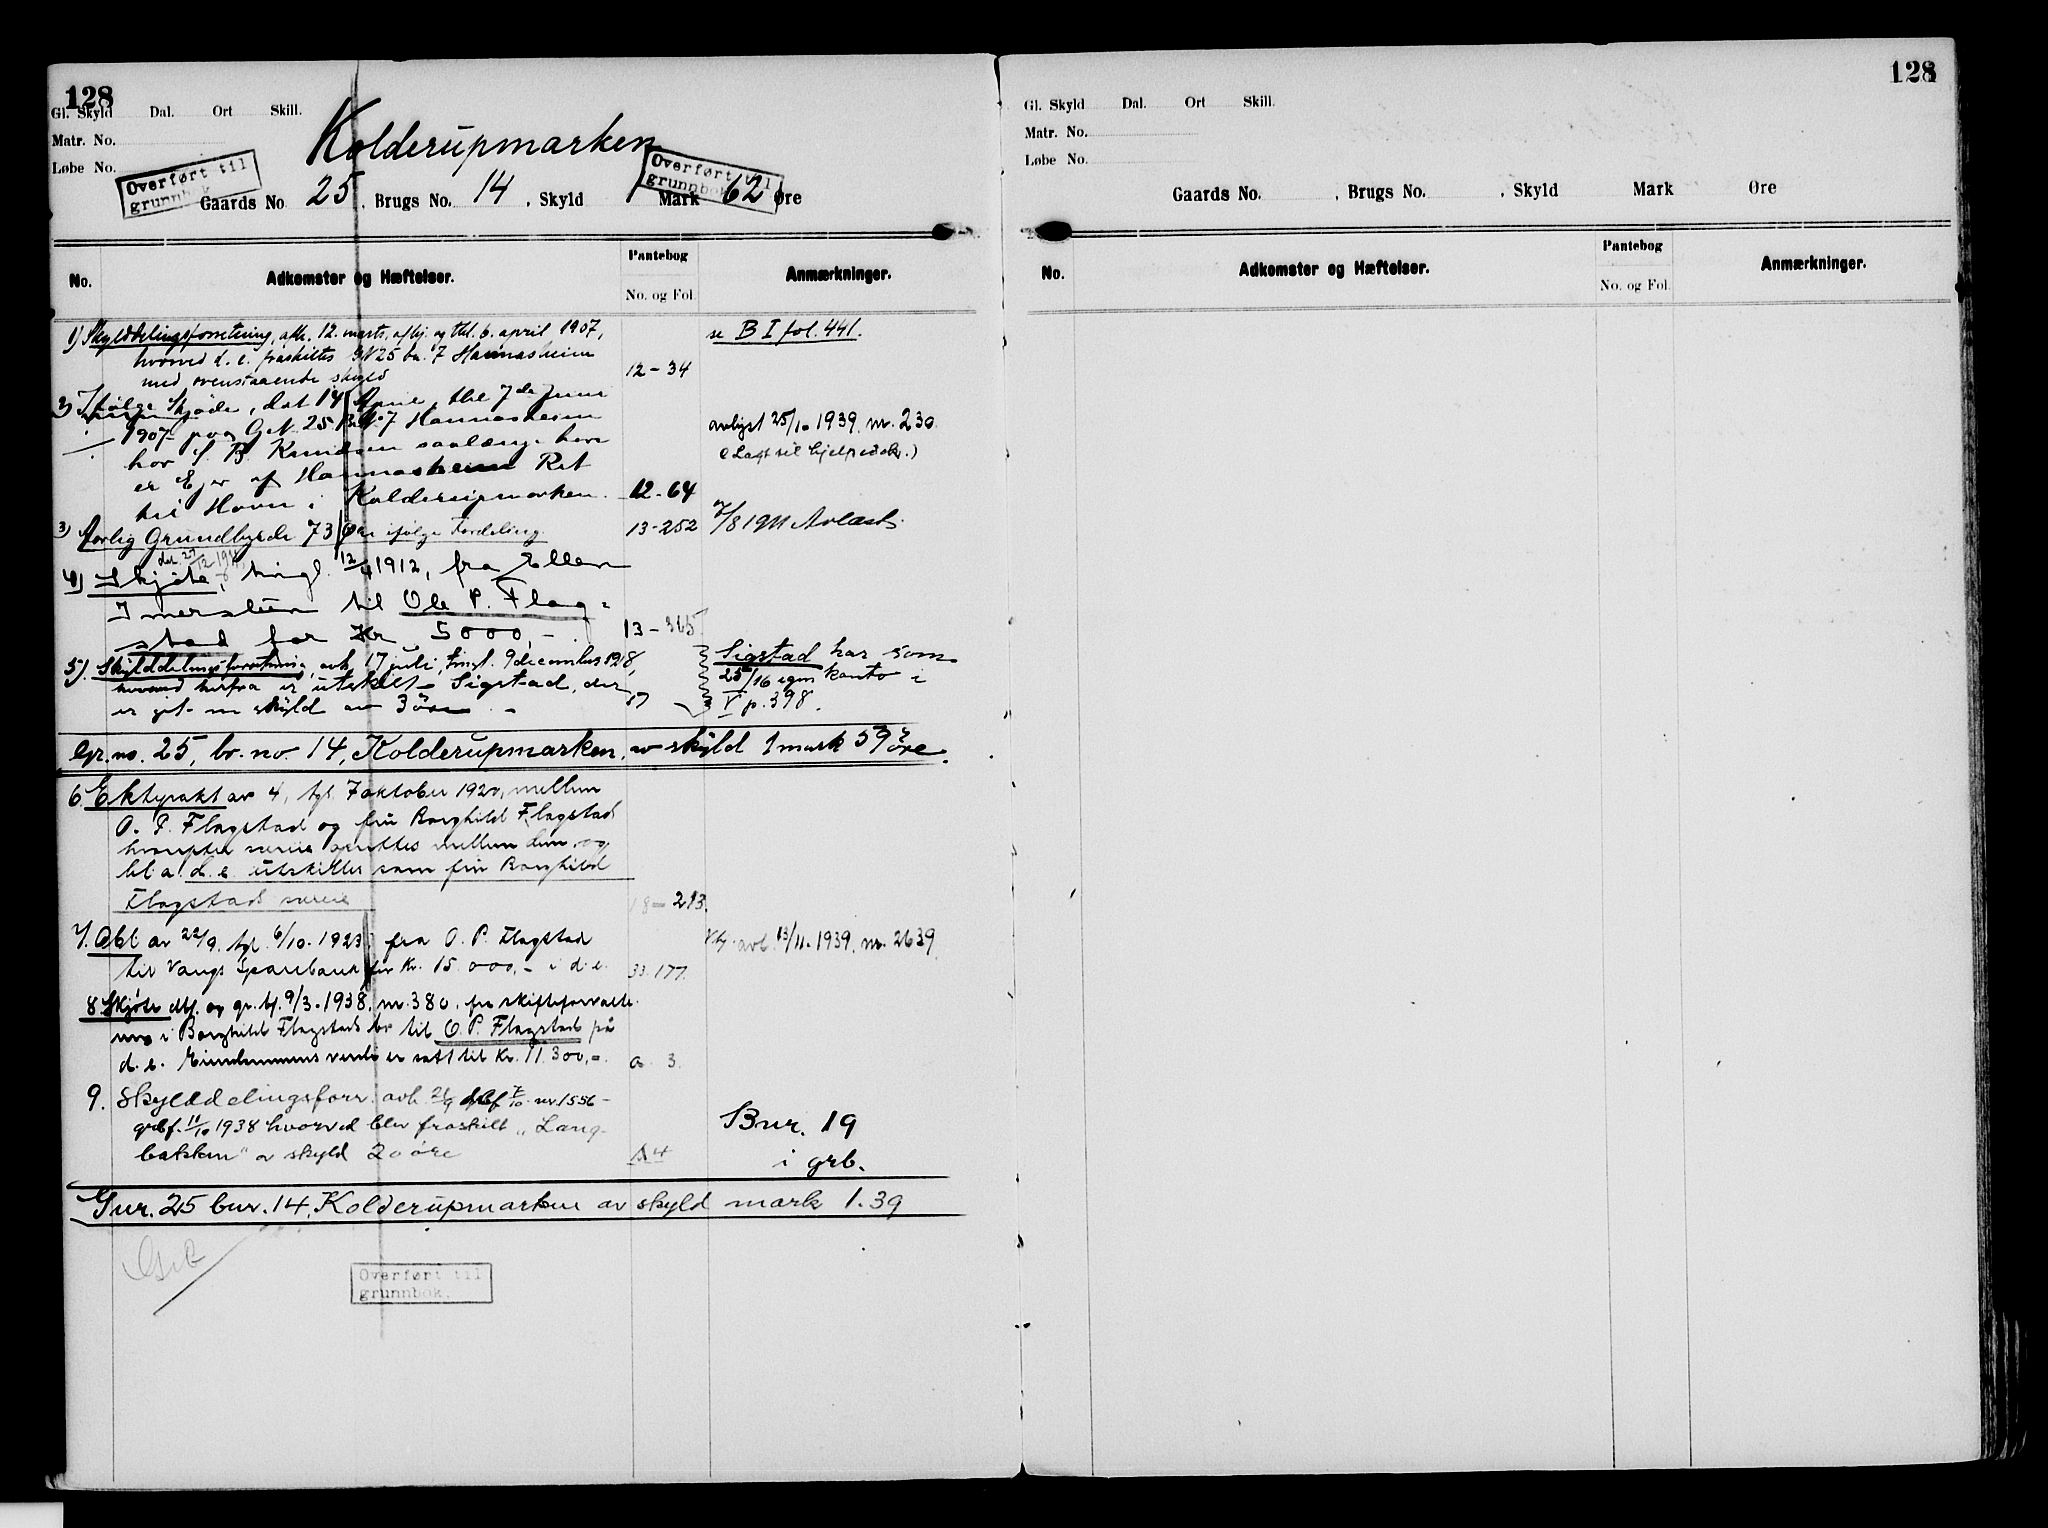 128
Gl. Skyld Dal. Ort Skill.
Matr. No.
Løbe No.
Kolderupmarken
Overført til
grunnbok
Overført til
grunnbok
Gaards No. 25, Brugs No. 14, Skyld 1 Mark 62 Øre
No. Adkomster og Hæftelser. Pantebog No. og Fol. Anmærkninger.
1) Skylddelingsforretning, afh. 12. marts, afhj. og thl. 6. april 1907, se B I fol. 441.
hvorved d. e. fraskiltes GN 25 bn. 7 Hannasheim
med ovenstaaende skyld 12-34
2) Ifølge Skjøde, dat 14 April, thl 7de Juni
1907 paa G.N. 25 B.No 7 Hannasheim avlyst 25/10 1939. nr. 230.
har S. B. Knudsen saalænge han (Lagt til hjelpedok.)
er Ejer af Hannasheim Ret
til Havn i Kolderupmarken. 12-64
3) Aarlig Grundbyrde 73 Øre ifølge Fordeling. 13-252 7/8 1911 Avlæst.
dat. 27/12 1911,
4) Skjøte, tingl. 12/4 1912, fra Ellen
Imerslun til Ole P. Flag=
stad for Kr 5000,-. 13-365.
5). Skylddelingsforretning, avh. 17 juli, tingl. 9 december 1918, Sigstad har som
hvorved herfra er utskilt Sigstad, der 25/16 egen konto i
er git en skyld av 3 øre. - V p. 398.
Gr. no. 25, br. no. 14, Kolderupmarken, av skyld 1 mark 59 øre.
6. Ektepakt av 4, tgl. 7 oktober 1920, mellem
O. P. Flagstad og fru Borghild Flagstad
hvorefter særeie oprettes mellem dem, og
bl. a. d. e. utskilles som fru Borghild
Flagstads særeie 18-213.
7. Obl av 22/9. tgl. 6/10. 1923. fra O. P. Flagstad avl. 13/11. 1939. nr. 2639.
til Vangs Sparebank for Kr. 15.000,- i d. e. 33.177.
8. Skjøte dbf. og gr. bf. 9/3-1938, nr. 380. fra skifteforvalte-
ren i Borghild Flagstads bo til O. P. Flagstad på
d. e. Eiendommens verdi er satt til Kr. 11.300,-. a 3.
9. Skylddelingsforr. avh. 26/9 dbf 7/10. nr. 1556 -
grbf. 11/10 1938 hvorved blev fraskilt "Lang- Bnr. 19
bakken" av skyld 20 øre A 4 i grb.
Gnr. 25 bnr. 14, Kolderupmarken av skyld mark 1.39
Overført til
grunnbok.
128
Gl. Skyld Dal. Ort Skill.
Matr. No.
Løbe No.
Gaards No. , Brugs No. , Skyld Mark Øre
No. Adkomster og Hæftelser. Pantebog No. og Fol. Anmærkninger.